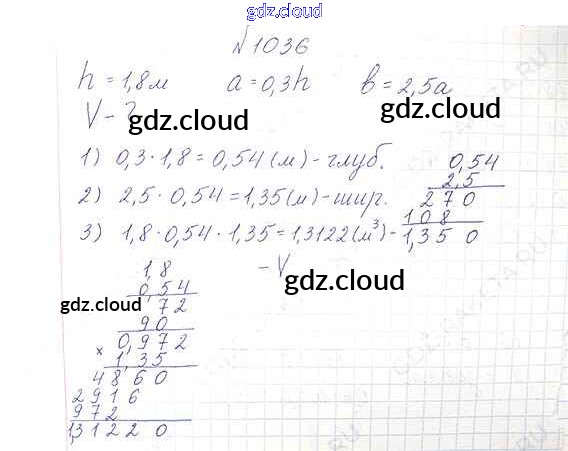 gdz.cloud
№1036
h = 1,8м   a = 0,3h   b = 2,5a
V - ?
gdz.cloud
gdz.cloud
1) 0,3 · 1,8 = 0,54 (м) - глуб.
2) 2,5 · 0,54 = 1,35 (м) - шир.
3) 1,8 · 0,54 · 1,35 = 1,3122 (м³) -
- V
0,54
2,5
270
108
1,350
gdz.cloud
gdz.cloud
1,8
0,54
72
90
0,972
× 1,35
4860
2916
972
1,31220